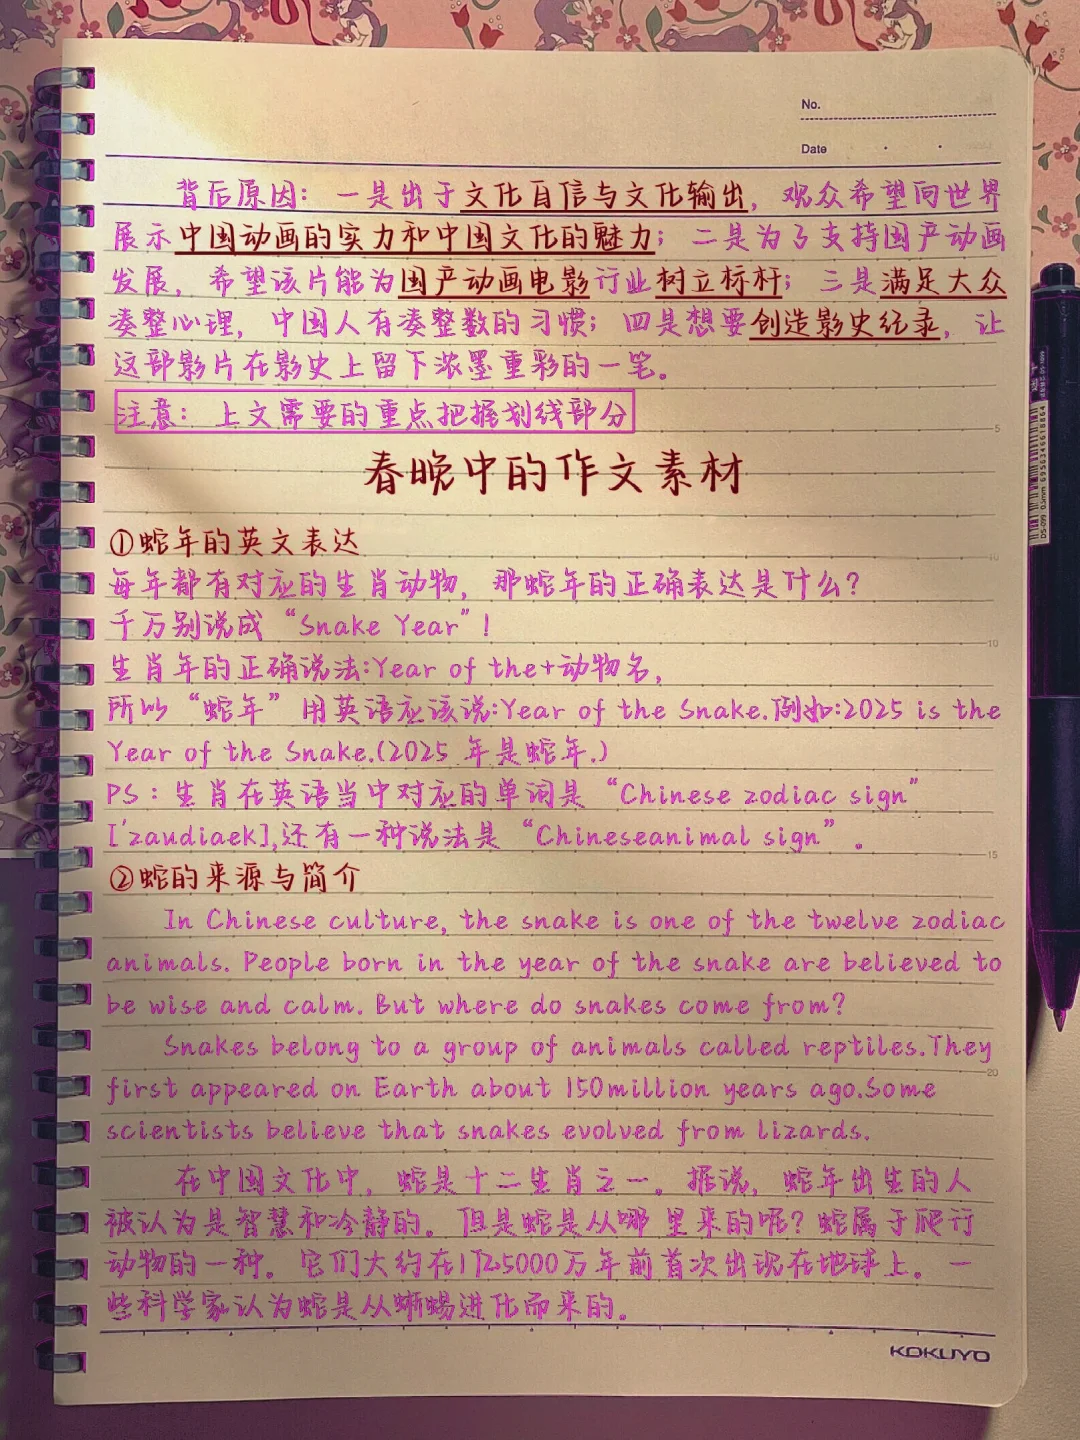 No.
Date
背后原因：一是出于文化自信与文化输出，观众希望向世界
展示中国动画的实力和中国文化的魅力；二是为了支持国产动画
发展，希望该片能为国产动画电影行业树立标杆；三是满足大众
凑整心理，中国人有凑整数的习惯；四是想要创造影史纪录，让
这部影片在影史上留下浓墨重彩的一笔。
注意：上文需要的重点把握划线部分
5
春晚中的作文素材
①蛇年的英文表达
每年都有对应的生肖动物，那蛇年的正确表达是什么？
千万别说成“Snake Year”！
10
生肖年的正确说法:Year of the+动物名，
所以“蛇年”用英语应该说:Year of the Snake.例如:2025 is the
Year of the Snake.(2025 年是蛇年.)
PS：生肖在英语当中对应的单词是“Chinese zodiac sign”
['zaudiaek],还有一种说法是“Chineseanimal sign”。
15
②蛇的来源与简介
In Chinese culture, the snake is one of the twelve zodiac
animals. People born in the year of the snake are believed to
be wise and calm. But where do snakes come from?
Snakes belong to a group of animals called reptiles.They
20
first appeared on Earth about 150million years ago.Some
scientists believe that snakes evolved from lizards.
在中国文化中，蛇是十二生肖之一。据说，蛇年出生的人
被认为是智慧和冷静的。但是蛇是从哪里来的呢？蛇属于爬行
动物的一种。它们大约在1亿5000万年前首次出现在地球上。一
些科学家认为蛇是从蜥蜴进化而来的。
KOKUYO
DS-099 0.5mm 6956346618864